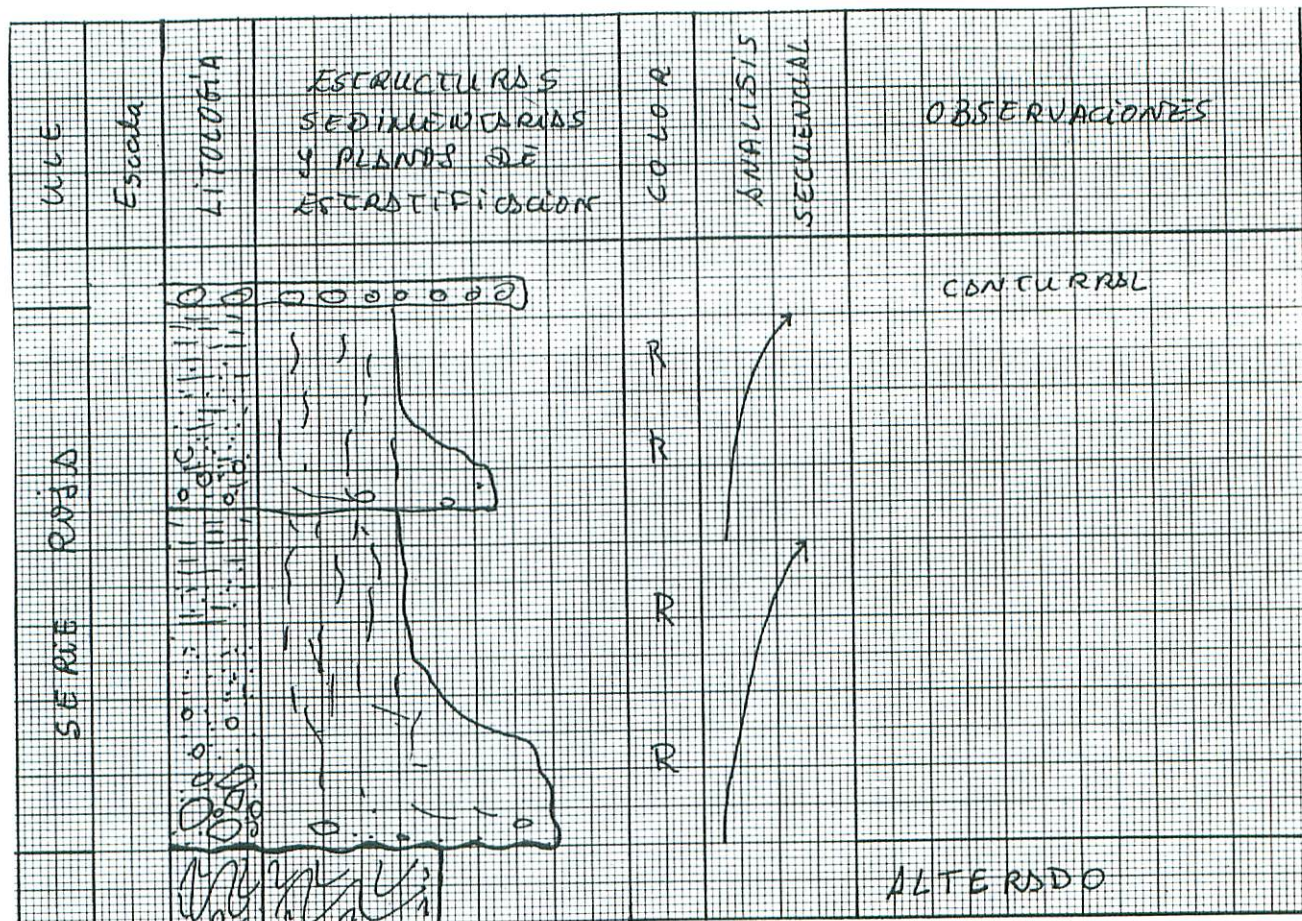 ULE
Escala
LITOLOGÍA
ESTRUCTURAS
SEDIMENTARIAS
Y PLANOS DE
ESTRATIFICACION
COLOR
ANALISIS
SECUENCIAL
OBSERVACIONES
CANTURRAL
SERIE ROJA
R
R
R
R
ALTERADO